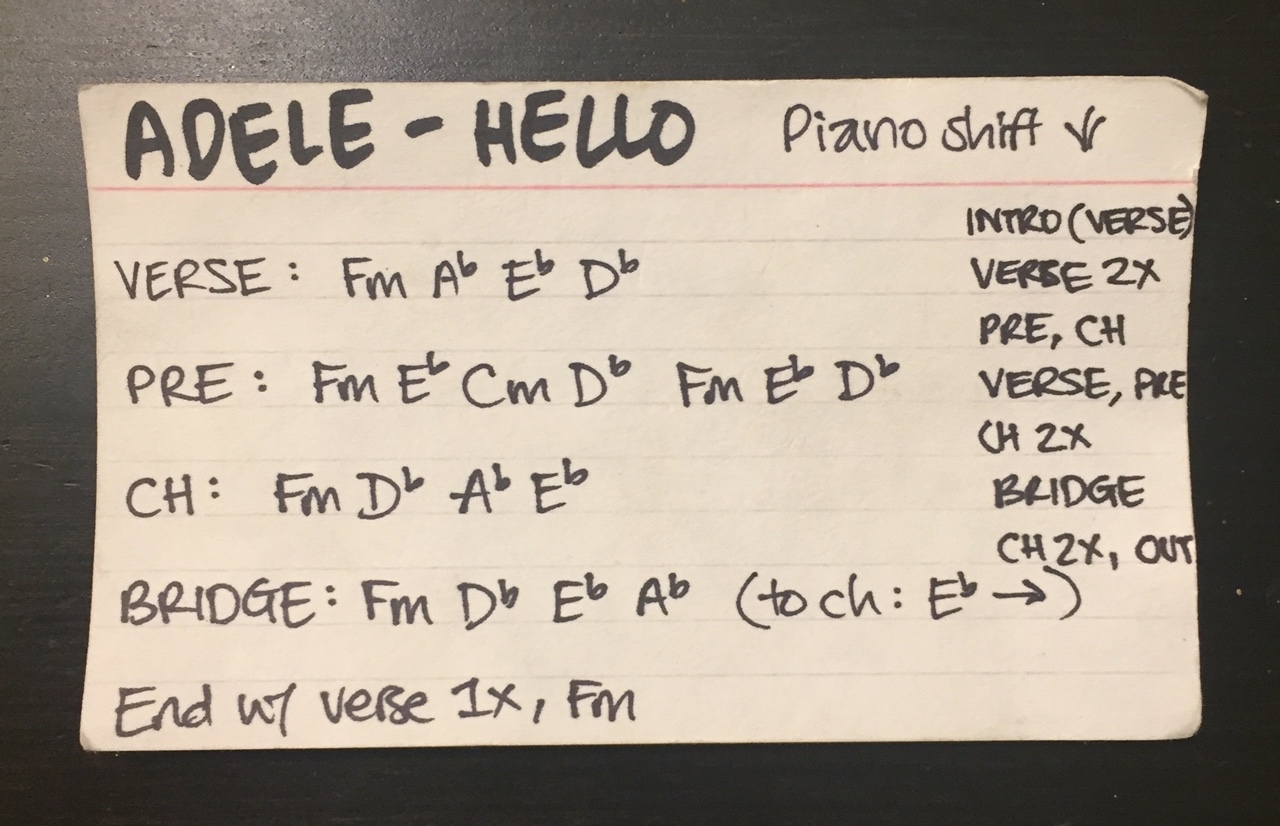 ADELE - HELLO
Piano shift ↓
VERSE: Fm A♭ E♭ D♭
PRE: Fm E♭ Cm D♭ Fm E♭ D♭
CH: Fm D♭ A♭ E♭
BRIDGE: Fm D♭ E♭ A♭ (to ch: E♭ →)
End w/ verse 1x, Fm
INTRO (VERSE)
VERSE 2X
PRE, CH
VERSE, PRE
CH 2X
BRIDGE
CH 2X, OUT